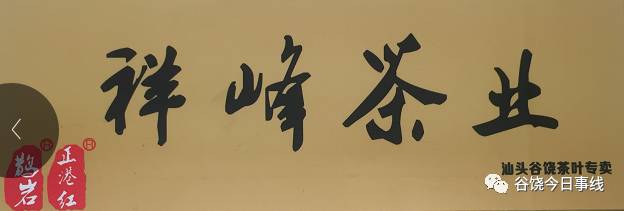 祥峰茶业
正港红
汕头谷饶茶叶专卖
谷饶今日事线